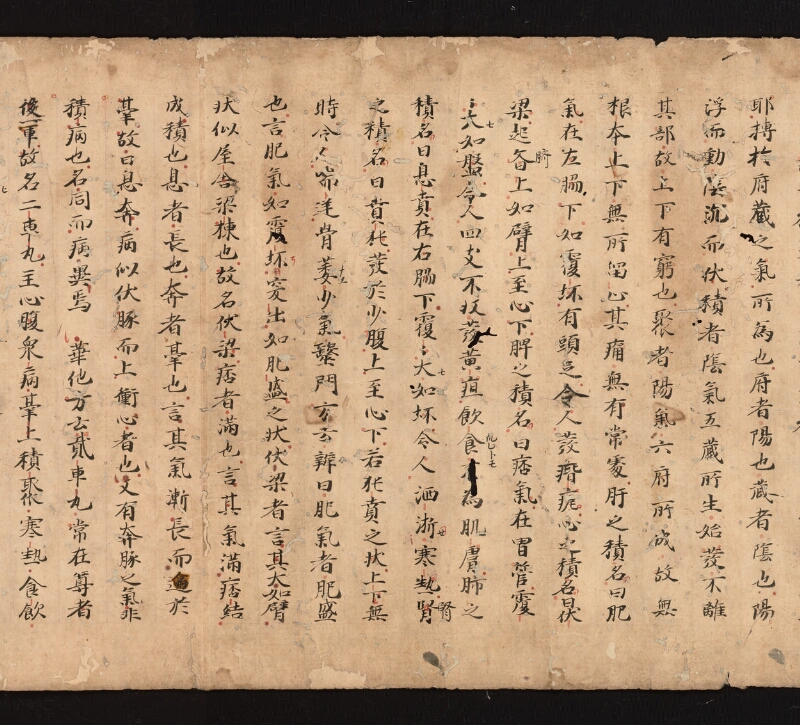 耶搏於府蔵之氣所為也府者陽也蔵者陰也陽
浮而動陰沉而伏積者陰氣五蔵所生始發不離
其部故上下有窮也聚者陽氣六府所成故無
根本上下無所留止其痛無有常處肝之積名曰肥
氣在左脇下如覆坏有頭足令人發瘖瘧心之積名曰伏
梁起脐上如臂上至心下脾之積名曰痞氣在胃管覆
〻大如盤令人四支不收發黄疸飲食不為肌膚肺之
積名曰息賁在右脇下覆〻大如坏令人洒淅寒熱腎
之積名曰賁豘發於少腹上至心下若豘賁之状上下無
時令人喘逆骨萎少氣繋門方云辨曰肥氣者肥盛
也言肥氣如覆坏突出如肥盛之状伏梁者言其大如臂
状似屋舎梁棟也故名伏梁痞者滿也言其氣滿痞結
成積也息者長也奔者葷也言其氣漸長而逼於
葷故曰息奔病似伏豚而上衝心者也又有奔豚之氣非
積病也名同而病異焉 華他方云貳車丸常在尊者
後一軍故名二車丸主心腹衆病葷上積聚寒熱食飲